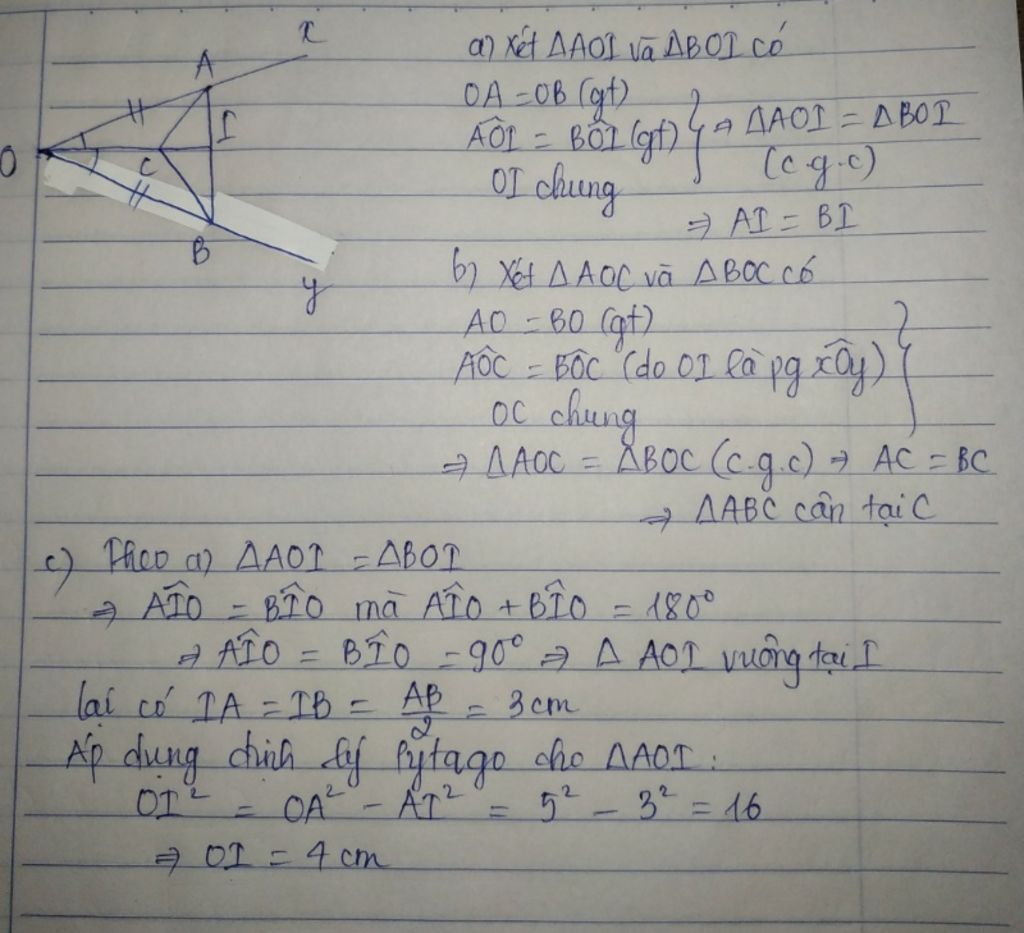 x
A
I
O
C
B
y
a) Xét ΔAOI và ΔBOI có
OA = OB (gt)
AÔI = BÔI (gt) } ⇒ ΔAOI = ΔBOI
OI chung (c.g.c)
⇒ AI = BI
b) Xét ΔAOC và ΔBOC có
AO = BO (gt)
AÔC = BÔC (do OI là pg xÔy) }
OC chung
⇒ ΔAOC = ΔBOC (c.g.c) ⇒ AC = BC
⇒ ΔABC cân tại C
c) Theo a) ΔAOI = ΔBOI
⇒ AÎO = BÎO mà AÎO + BÎO = 180°
⇒ AÎO = BÎO = 90° ⇒ Δ AOI vuông tại I
lại có IA = IB = AB/2 = 3 cm
Áp dụng định lý Pytago cho ΔAOI :
OI² = OA² - AI² = 5² - 3² = 16
⇒ OI = 4 cm